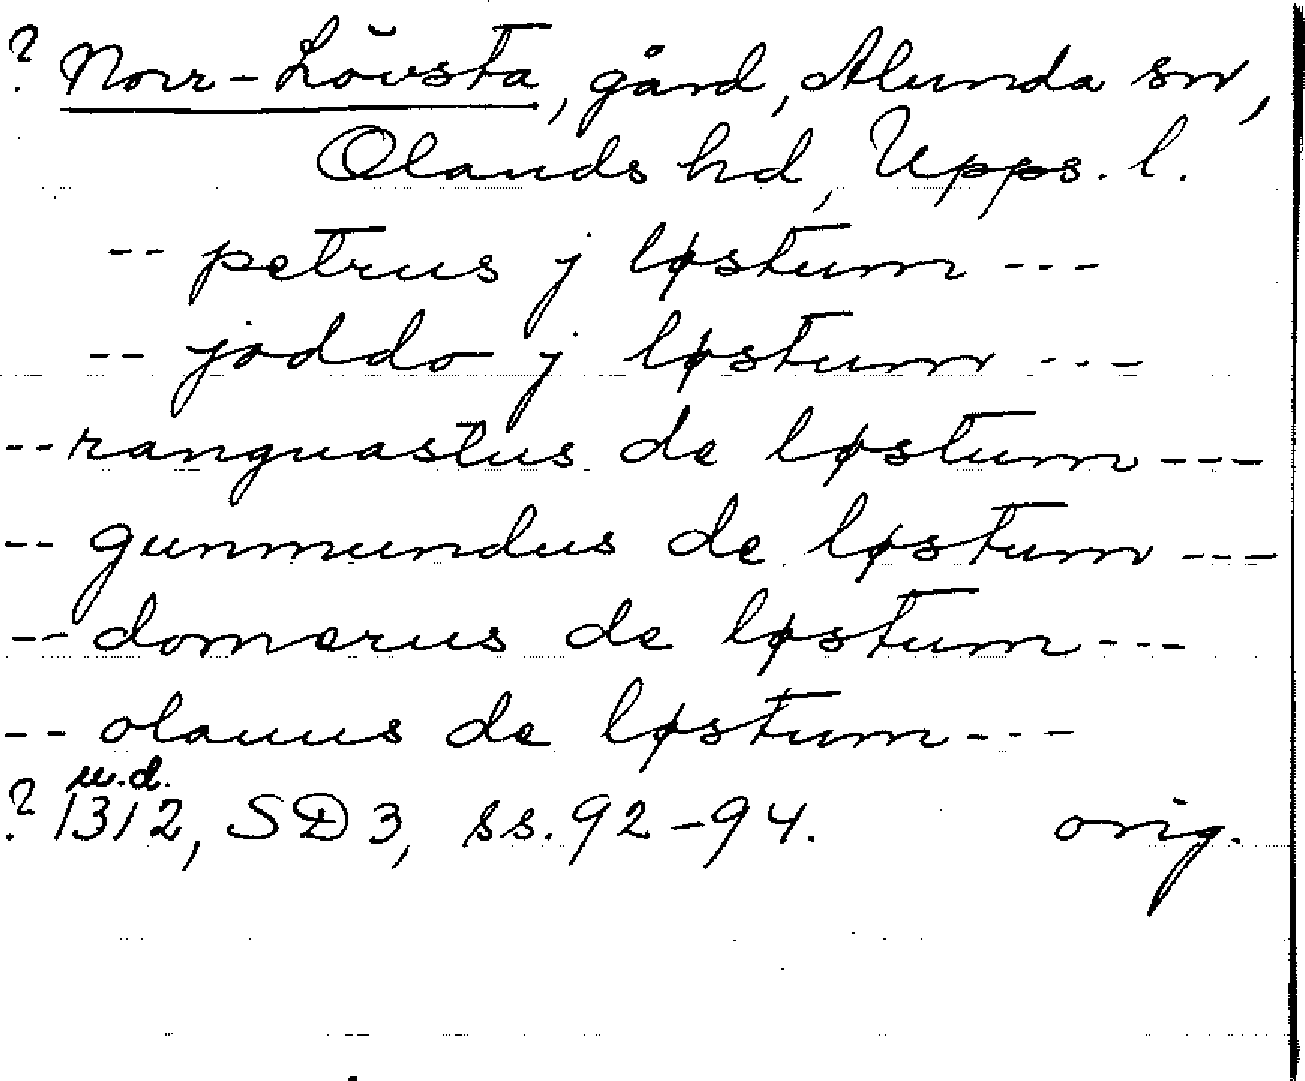 ? Norr-Lövsta, gård, Alunda sn,
Olands hd, Upps. l.
-- petrus j løstum ---
-- joddo j løstum ---
-- ranguastus de løstum ---
-- gunmundus de løstum ---
-- domerus de løstum ---
-- olauus de løstum ---
u.d.
? 1312, SD 3, ss. 92-94. orig.